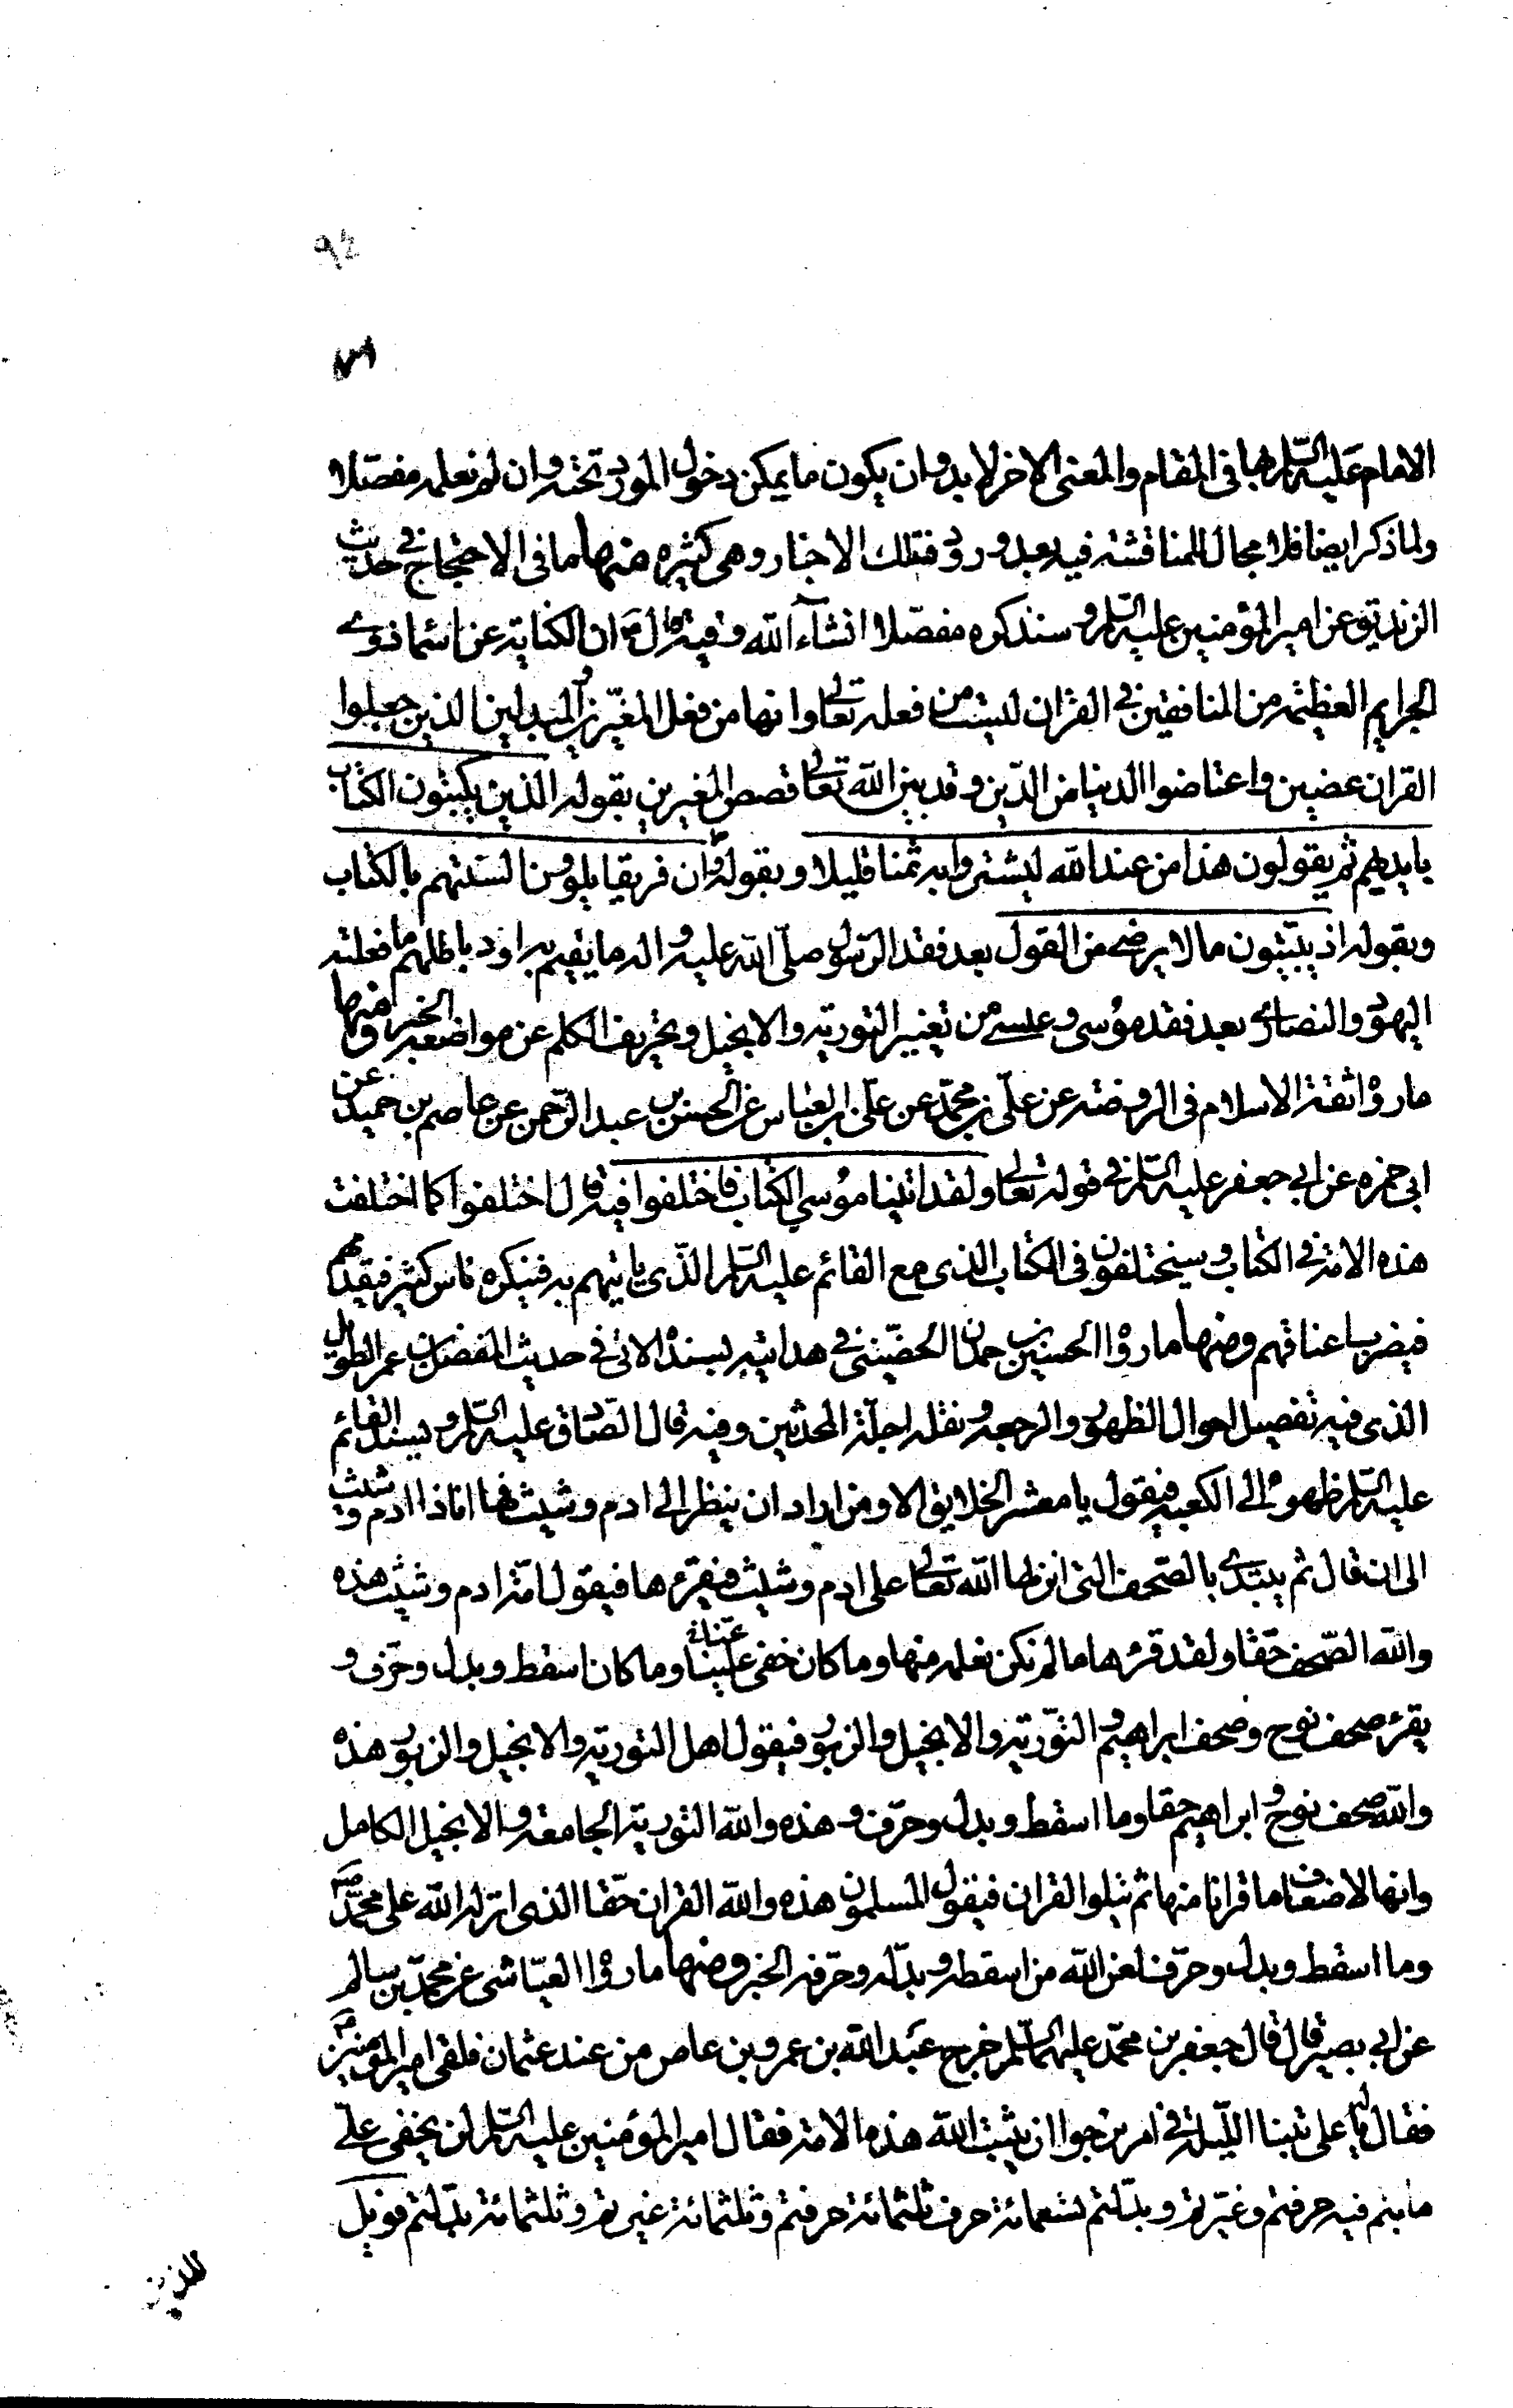 ٩٤
الامام عليه السلام بها فى المقام والمعنى الاخر لا بد وان يكون ما يمكن دخول المورد تحته وان لم نعلمه مفصّلا
ولما ذكر ايضا فلا مجال للمناقشة فيه بعد ورود تلك الاخبار وهى كثيرة منها ما فى الاحتجاج فى حديث
الزنديق عن امير المؤمنين عليه السلام وسنذكره مفصّلا انشاء الله وفيه قال ع ان الكناية عن اسماء ذوى
الجراير العظيمة من المنافقين فى القران ليست من فعله تعالى وانها من فعل المغيّرين والمبدلين الذين جعلوا
القران عضين واعتاضوا الدنيا من الدّين وقد بين الله تعالى قصص المغيرين بقوله الذين يكتبون الكتاب
بايديهم ثم يقولون هذا من عند الله ليشتروا به ثمنا قليلا وبقوله وان فريقا يلوون السنتهم بالكتاب
وبقوله اذ يبيّتون ما لا يرضى من القول بعد فقد الرسول صلّى الله عليه واله ما يقيمون به اود باطلهم ما فعلته
اليهود والنصارى بعد فقد موسى وعيسى من تغيير التورية والانجيل وتحريف الكلم عن مواضعه الخبر ومنها
ما رواه ثقة الاسلام فى الروضة عن علّى بن محمّد عن علّى بن العباس عن الحسن بن عبد الرّحمن عن عاصم بن حميد عن
ابى حمزه عن ابى جعفر عليه السلام فى قوله تعالى ولقد اتينا موسى الكتاب فاختلفوا فيه قال اختلفوا كما اختلفت
هذه الامة فى الكتاب وسيختلفون فى الكتاب الذى مع القائم عليه السلام الذّى ياتيهم به فينكره ناس كثير فيقدمهم
فيضرب اعناقهم ومنها ما رواه الحسين بن حمدان الحضينى فى هدايته بسنده الاتى فى حديث المفضل بن عمر الطويل
الذى فيه تفصيل احوال الظهور والرجعة ونقله اجلّة المحدثين وفيه قال الصّادق عليه السلام ويسند القائم
عليه السلام ظهره الى الكعبه فيقول يا معشر الخلايق الا ومن اراد ان ينظر الى ادم وشيث فها انا ذا ادم وشيث
الى ان قال ثم يبتدى بالصّحف التى انزلها الله تعالى على ادم وشيث فيقرئها فيقول امّة ادم وشيث هذه
والله الصّحف حقّا ولقد قرئها ما لم نكن نعلمه منها وما كان خفى علينا عنا وما كان اسقط وبدل وحرّف و
يقرء صحف نوح وصحف ابراهيم والتّورية والانجيل والزبور فيقول اهل التورية والانجيل والزبور هذه
والله صحف نوح وابراهيم حقا وما اسقط وبدل وحرّف وهذه والله التورية الجامعة والانجيل الكامل
وانها لاضعاف ما قرانا منها ثم يتلوا القران فيقول المسلمون هذه والله القران حقّا الذى انزله الله على محمّد ص
وما اسقط وبدل وحرّف لعن الله من اسقطه وبدّله وحرّفه الخبر ومنها ما رواه العيّاشى عن محمّد بن سالم
عن ابى بصير قال قال جعفر بن محمّد عليهما السّلم خرج عبد الله بن عمرو بن عاص من عند عثمان فلقى امير المؤمنين ع
فقال له يا على بتنا الليلة فى امر نرجوا ان يثبت الله هذه الامة فقال امير المؤمنين عليه السلام لن يخفى علّى
ما بتم فيه حرفتم وغيّرتم وبدّلتم تسعمائة حرف ثلثمائة حرفتم وثلثمائة غيرتم وثلثمائة بدّلتم فويل
للذين